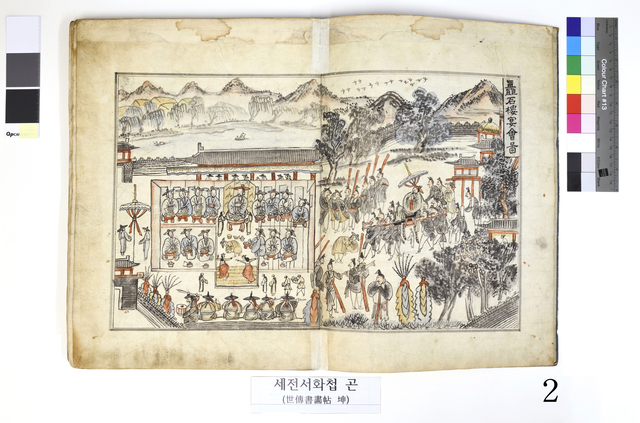 矗石樓宴會圖
Colour Chart #13
세전서화첩 곤
(世傳書畵帖 坤)
2